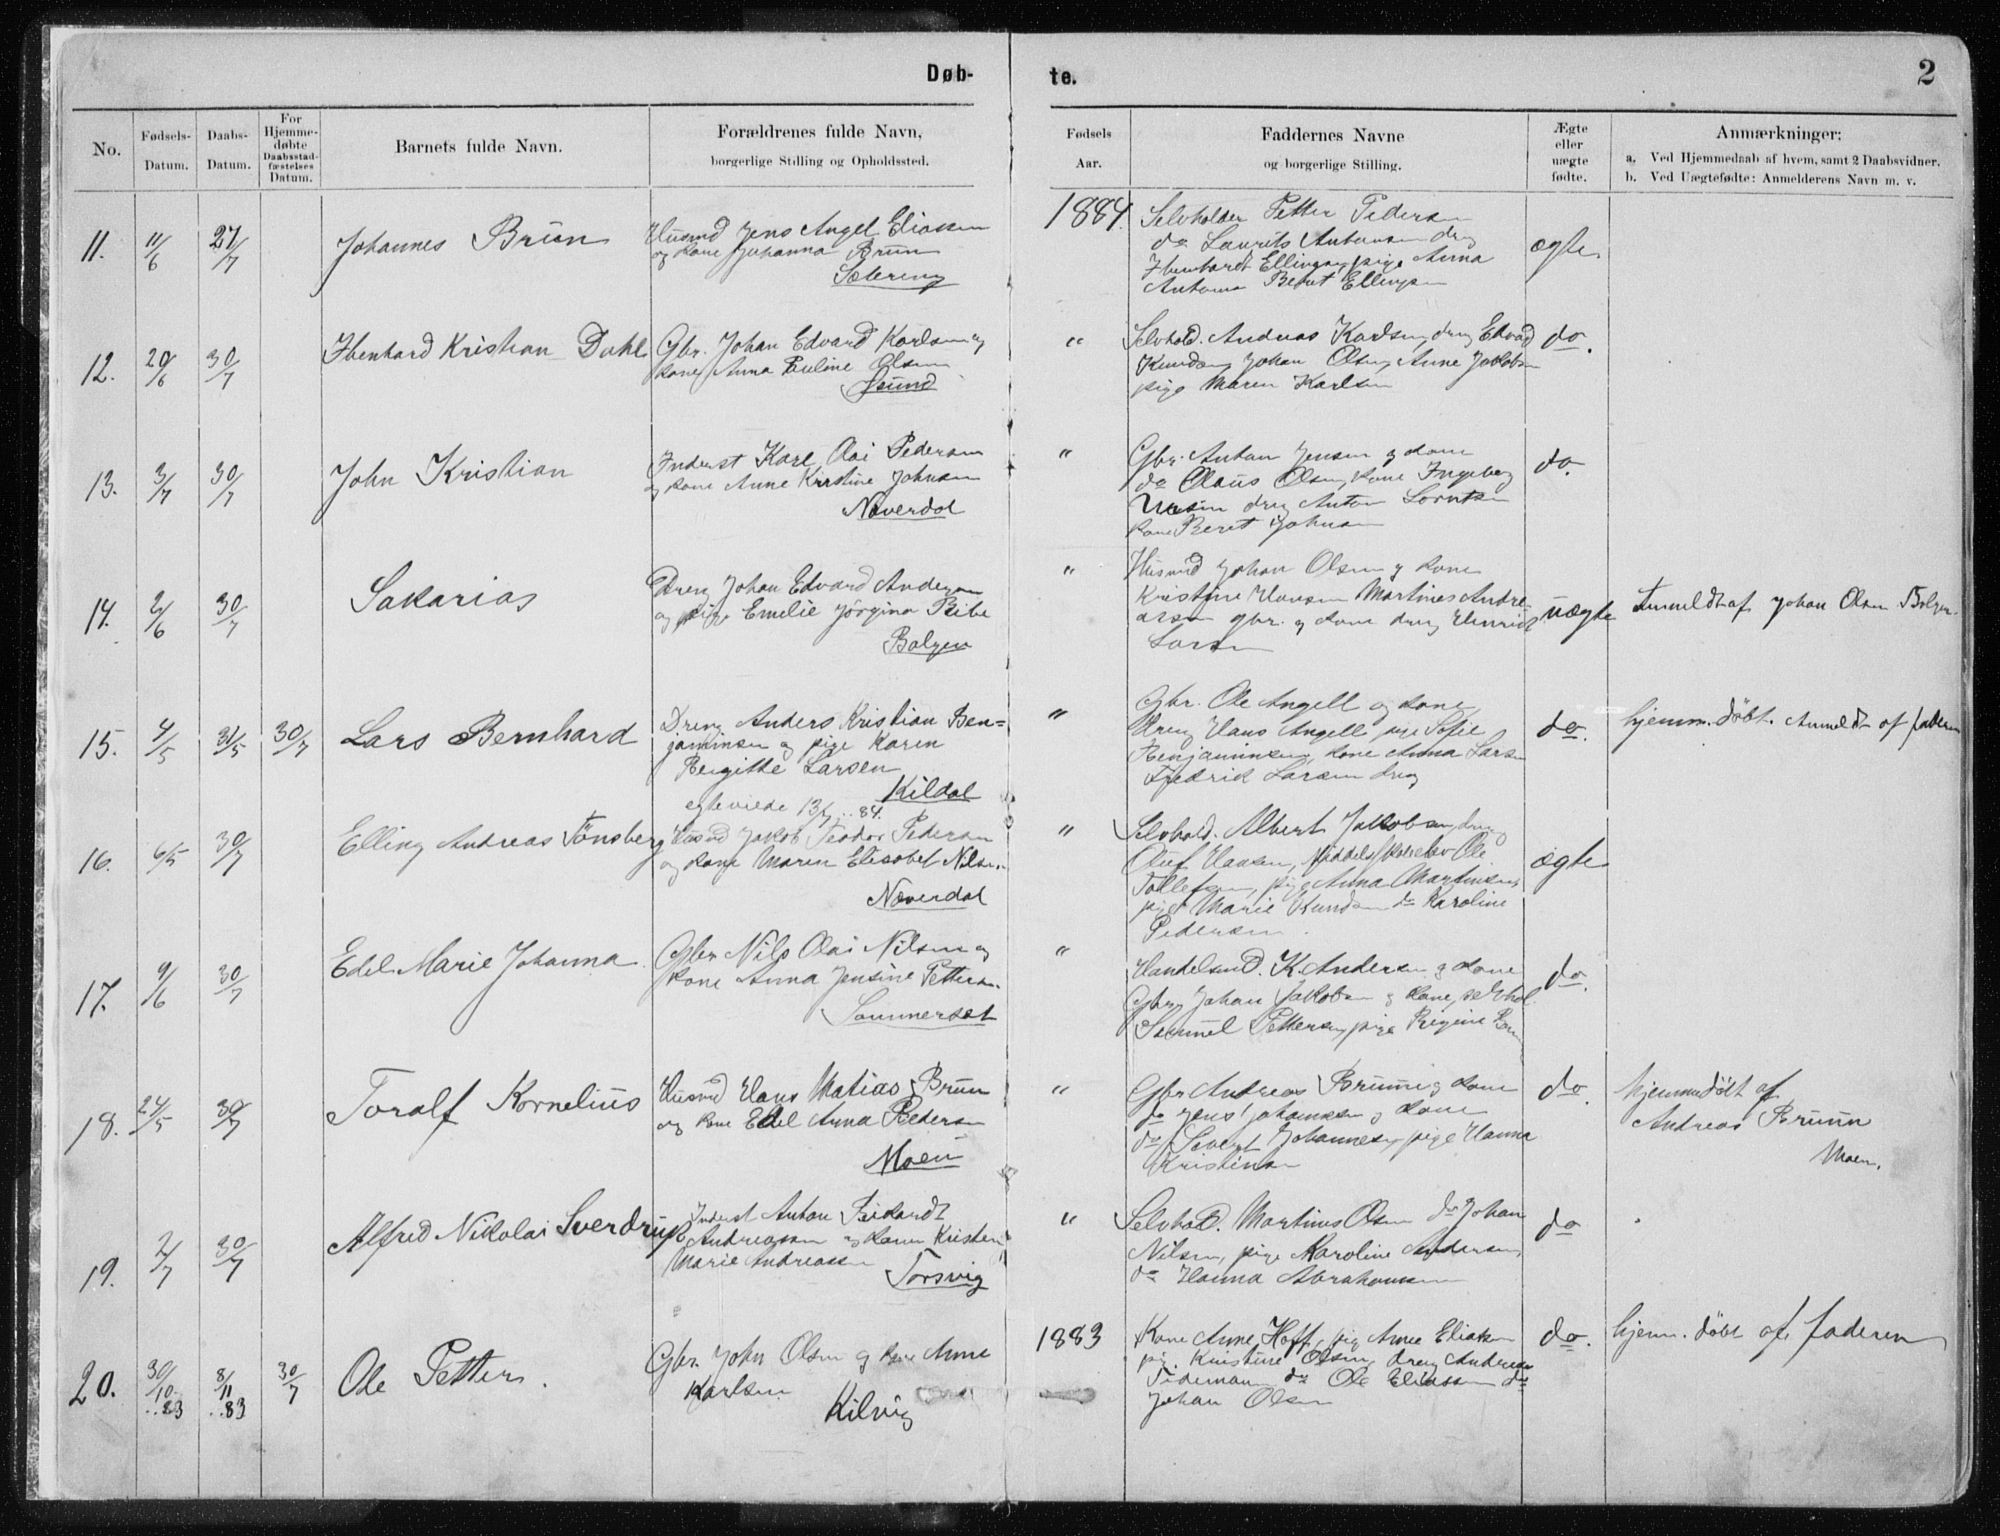 Døb-
te.
2
No.
Fødsels-
Datum.
Daabs-
Datum.
For
Hjemme-
døbte
Daabsstad-
fæstelses
Datum.
Barnets fulde Navn.
Forældrenes fulde Navn,
borgerlige Stilling og Opholdssted.
Fødsels
Aar.
Faddernes Navne
og borgerlige Stilling.
Ægte
eller
uægte
fødte.
Anmærkninger:
a. Ved Hjemmedaab af hvem, samt 2 Daabsvidner.
b. Ved Uægtefødte: Anmelderens Navn m. v.
11. 11/6 27/7 Johannes Brun
Husmd Jens Angel Eliassen
og kone Johanna Brun
Sætereng
1884. Selvholder Petter Pedersen
do Laurits Antonsen dreng
Ellingsen pige Anna
Antonsen Beret Ellingsen
ægte
12. 20/6 30/7 Ibenhard Kristian Dahl
Gbr. Johan Edvard Karlsen og
kone Anna Pauline Olsen
" Selvhold. Andreas Karlsen, dreng Edvard
Knudsen, Johan Olsen, Anne Jakobsen
pige Maren Karlsen
do.
13. 3/7 30/7 John Kristian
Inderst Karl Olai Pedersen
og kone Anne Kristine Johnsen
Næverdal
" Gbr. Anton Jensen og kone
do Olaus Olsen, kone Ingeborg
dreng Anton Lorntsen
kone Beret Johnsen
do.
14. 2/6 30/7 Sakarias
Dreng Johan Edvard Andersen
og pige Emelie Jørgina Beibe
Bolgen
" Husmd Johan Olsen og kone
Kristine Hansen Martines Andre-
asen gbr. og kone dreng Henrick
Larsen
uægte
Anmeldt af Johan Olsen Bolgen.
15. 4/5 31/5 30/7 Lars Bernhard
Dreng Anders Kristian Ben=
jaminsen og pige Karen
Birgitte Larsen
Kildal
egteviede 13/7..84.
" Gbr. Ole Angell og kone,
dreng Hans Angell pige Sofie
Benjaminsen, kone Anna Larsen
Fredrik Larsen dreng
do.
hjemm. døbt. Anmeldt af faderen
16. 6/5 30/7 Elling Andreas Tønsberg
Husmd Jakob Teodor Pedersen
og kone Maren Elisabet Nilsen.
Næverdal
" Selvhold. Albert Jakobsen, dreng
Oluf Hansen, Middelskolelev Ole
Tollefsen, pige Anna Martinsen,
pige Marie Knudsen do Karoline
Pedersen.
ægte
17. 9/6 30/7 Edel Marie Johanna
Gbr Nils Olai Nilsen og
kone Anna Jensine Pettersen.
Sommerset
" Handelsmd. K. Andersen og kone
Gbr Johan Jakobsen og kone, selvhol.
Samuel Pettersen, pige Regine
do.
18. 24/5 30/7 Toralf Kornelius
Husmd Hans Matias Brun
og kone Edel Anna Pedersen
Moen
" Gbr Andreas Bruun og kone
do Jens Johansen og kone
do Sivert Johannesen, pige Hanna
Kristinsen
do.
hjemmedøbt af
Andreas Bruun
Moen.
19. 2/7 30/7 Alfred Nikolai Sverdrup
Inderst Anton Rikardt
Andreassen og kone Kristen
Marie Andreassen
Torsvig
" Selvhold. Martinus Olsen do Johan
Nilsen, pige Karoline Andersen,
do Hanna Abrahamsen
do
20. 30/10..83 8/11..83 30/7 Ole Petter.
Gbr. John Olsen og kone Anne
Karlsen
Kilvig
1883 Kone Anne Hoff, pig Anne Eliasen
pig. Kristine Olsen, dreng Andreas
Tidemann do Ole Eliassen do
Johan Olsen
do.
hjem. døbt af faderen